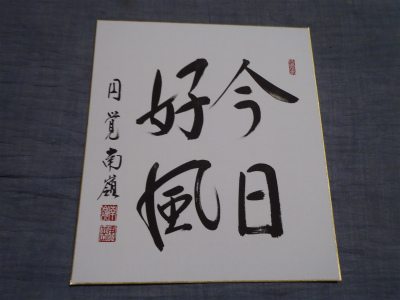 今日
好風
円覚南嶺